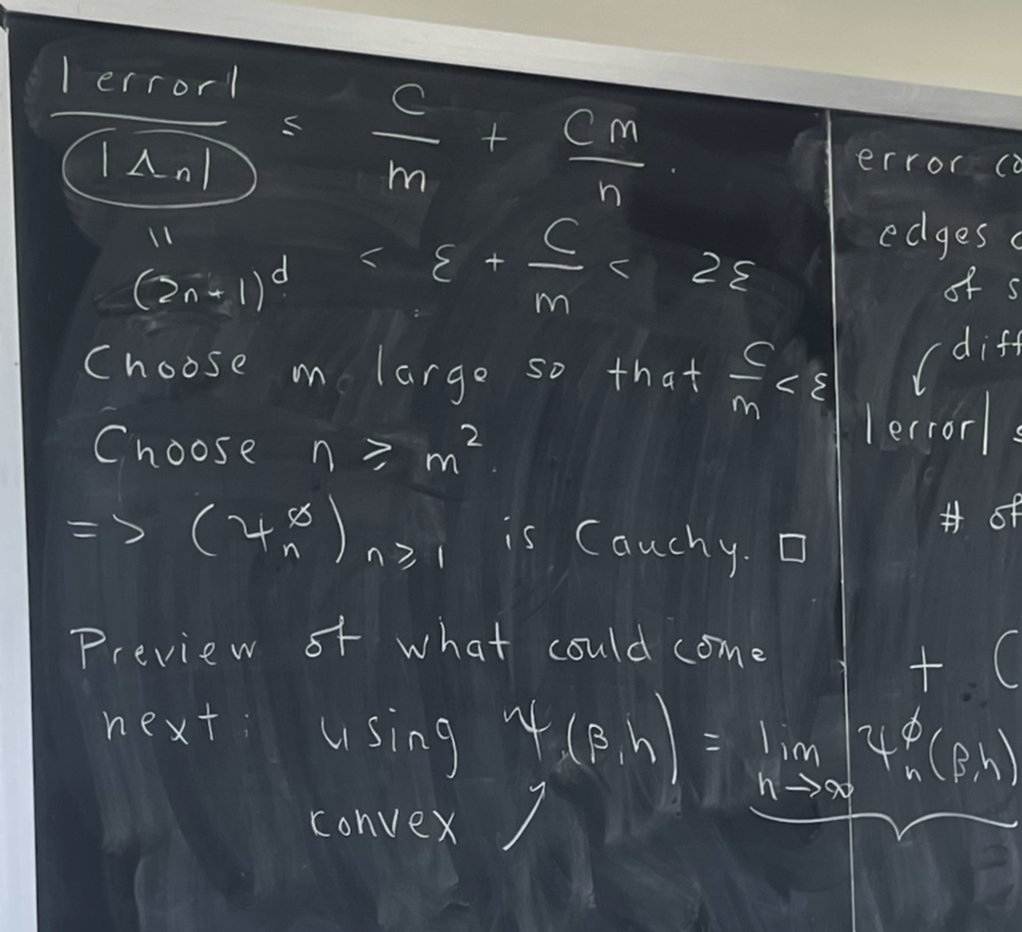 |error| / |Λₙ| ≤ C/m + Cm/n.
=
(2n+1)^d < ε + C/m < 2ε
Choose m large so that C/m < ε
Choose n ≥ m².
=> (ψₙ^∅)_{n≥1} is Cauchy. □
Preview of what could come
next: using ψ(β,h) = lim_{n→∞} ψₙ^∅(β,h)
convex
error
edges
of
diff
|error|
# of
+ C